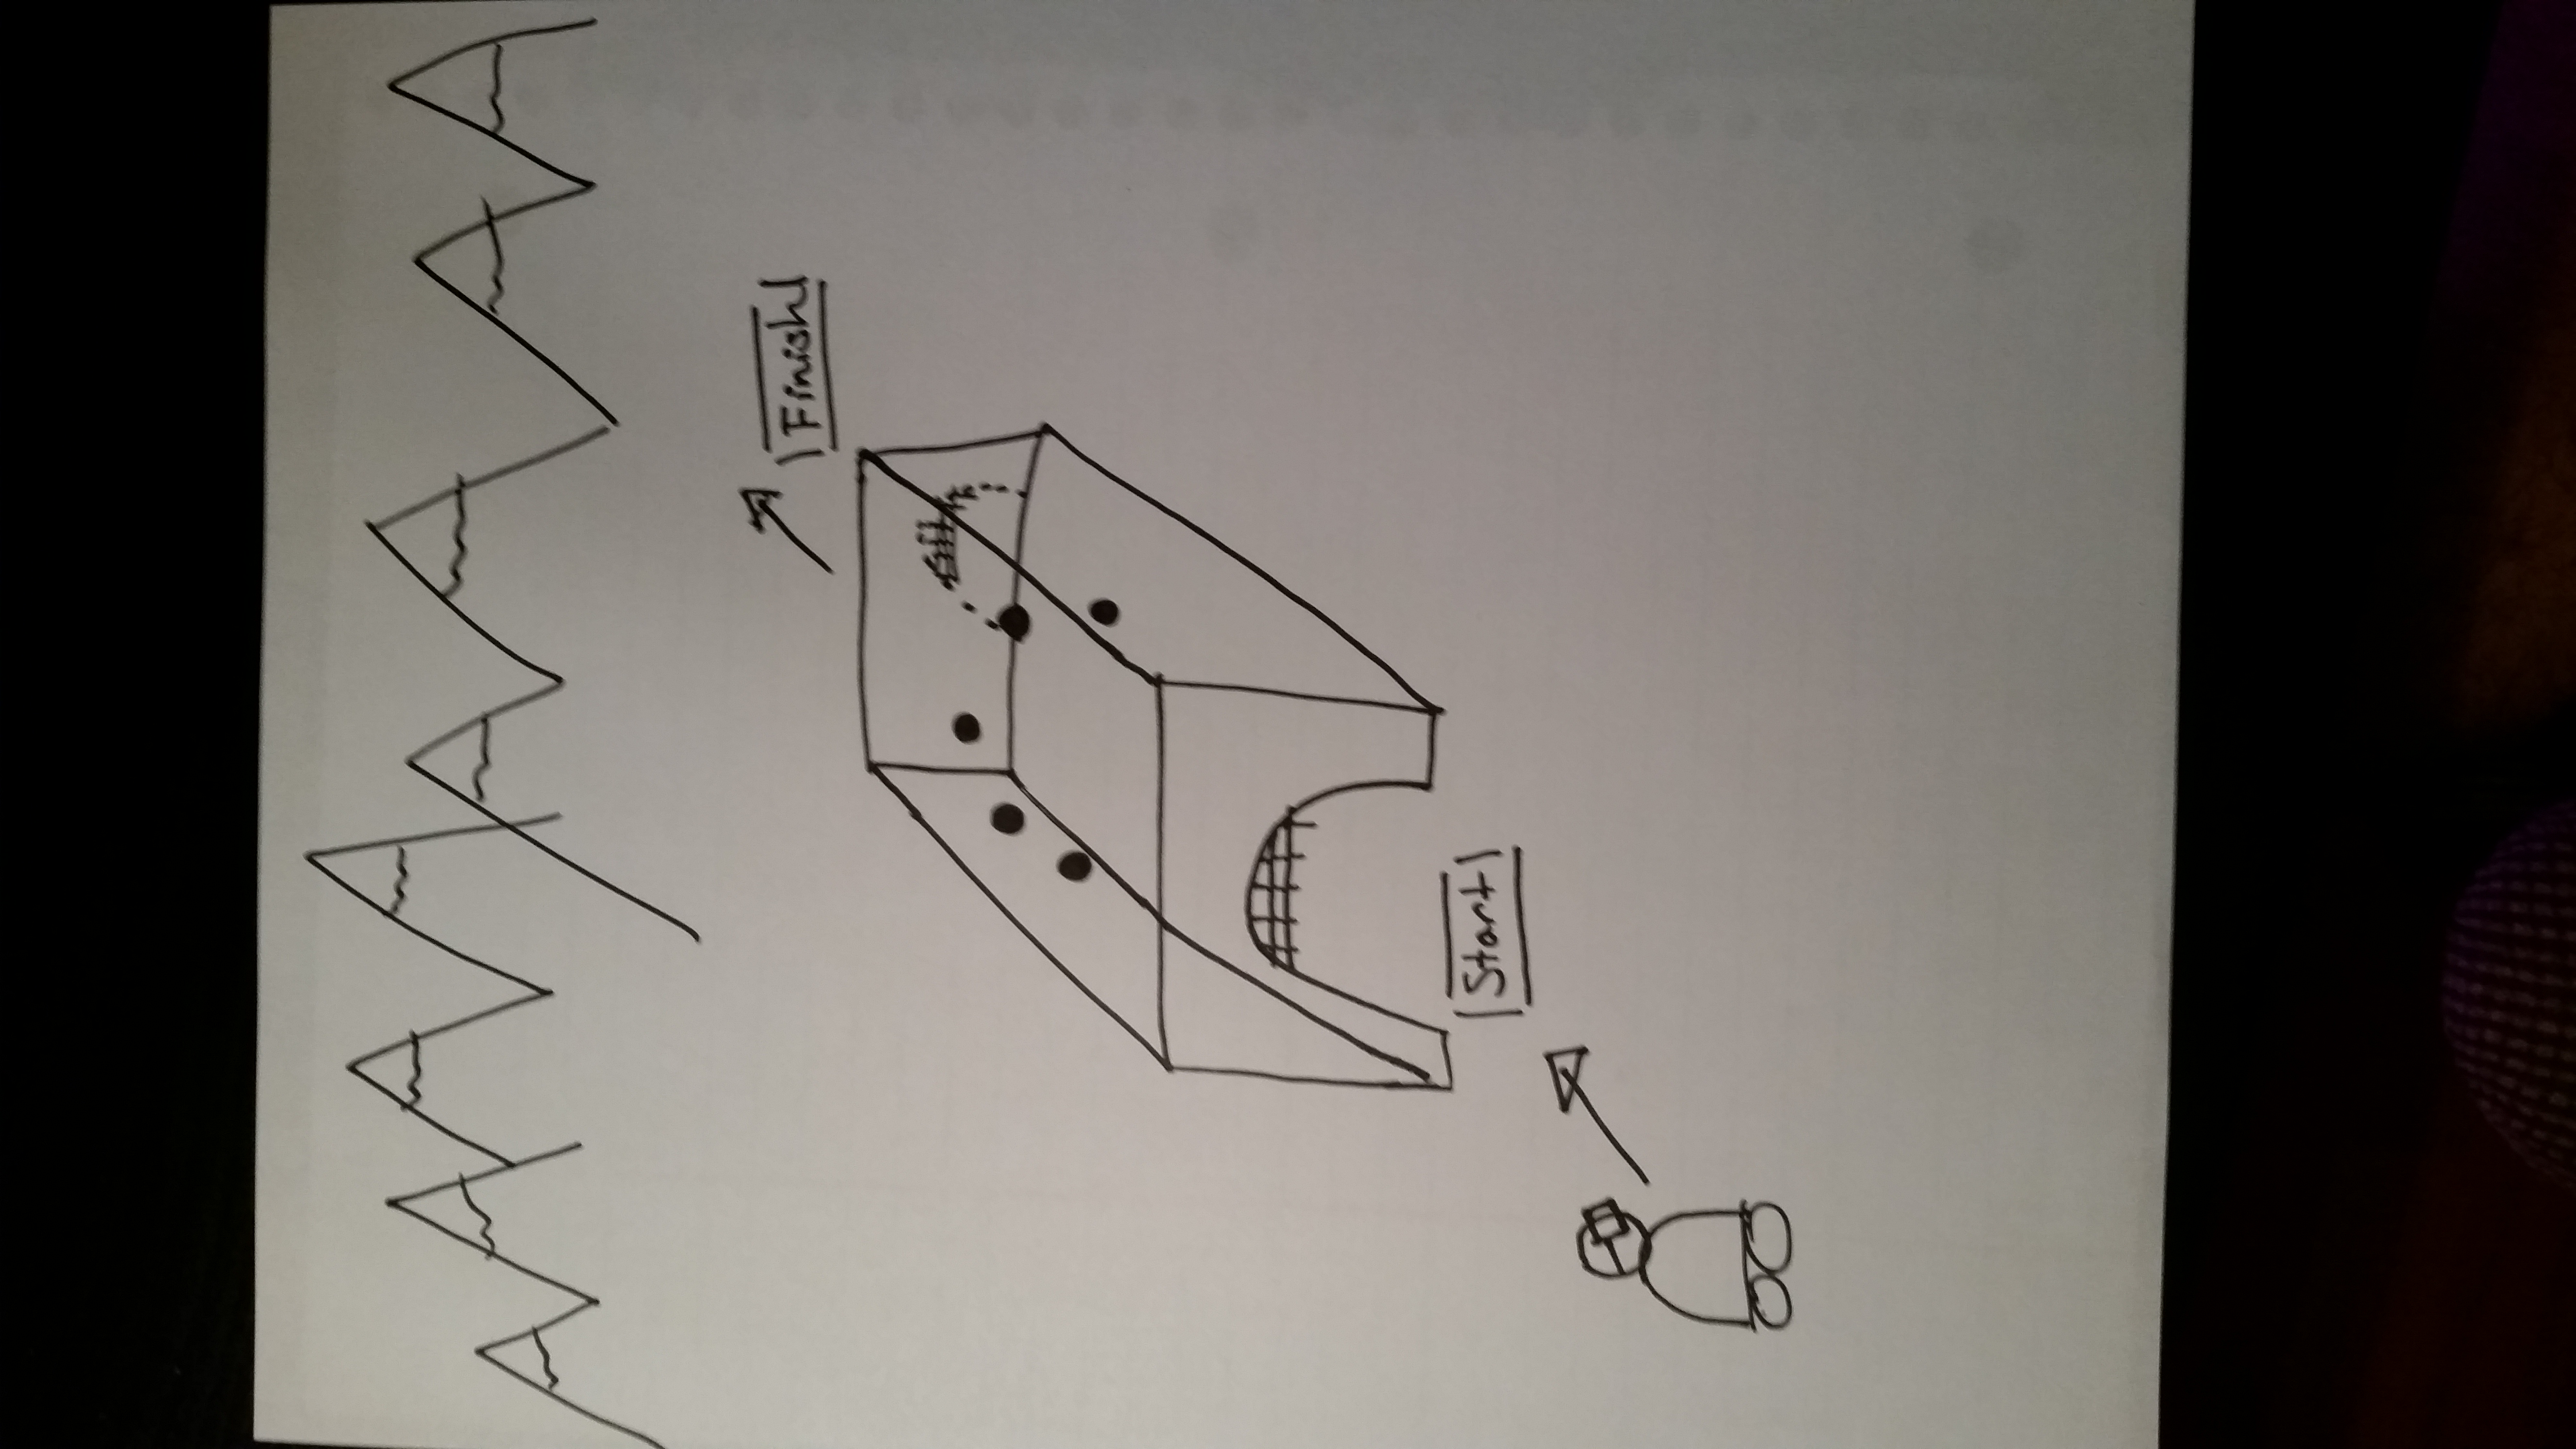 Finish
Start